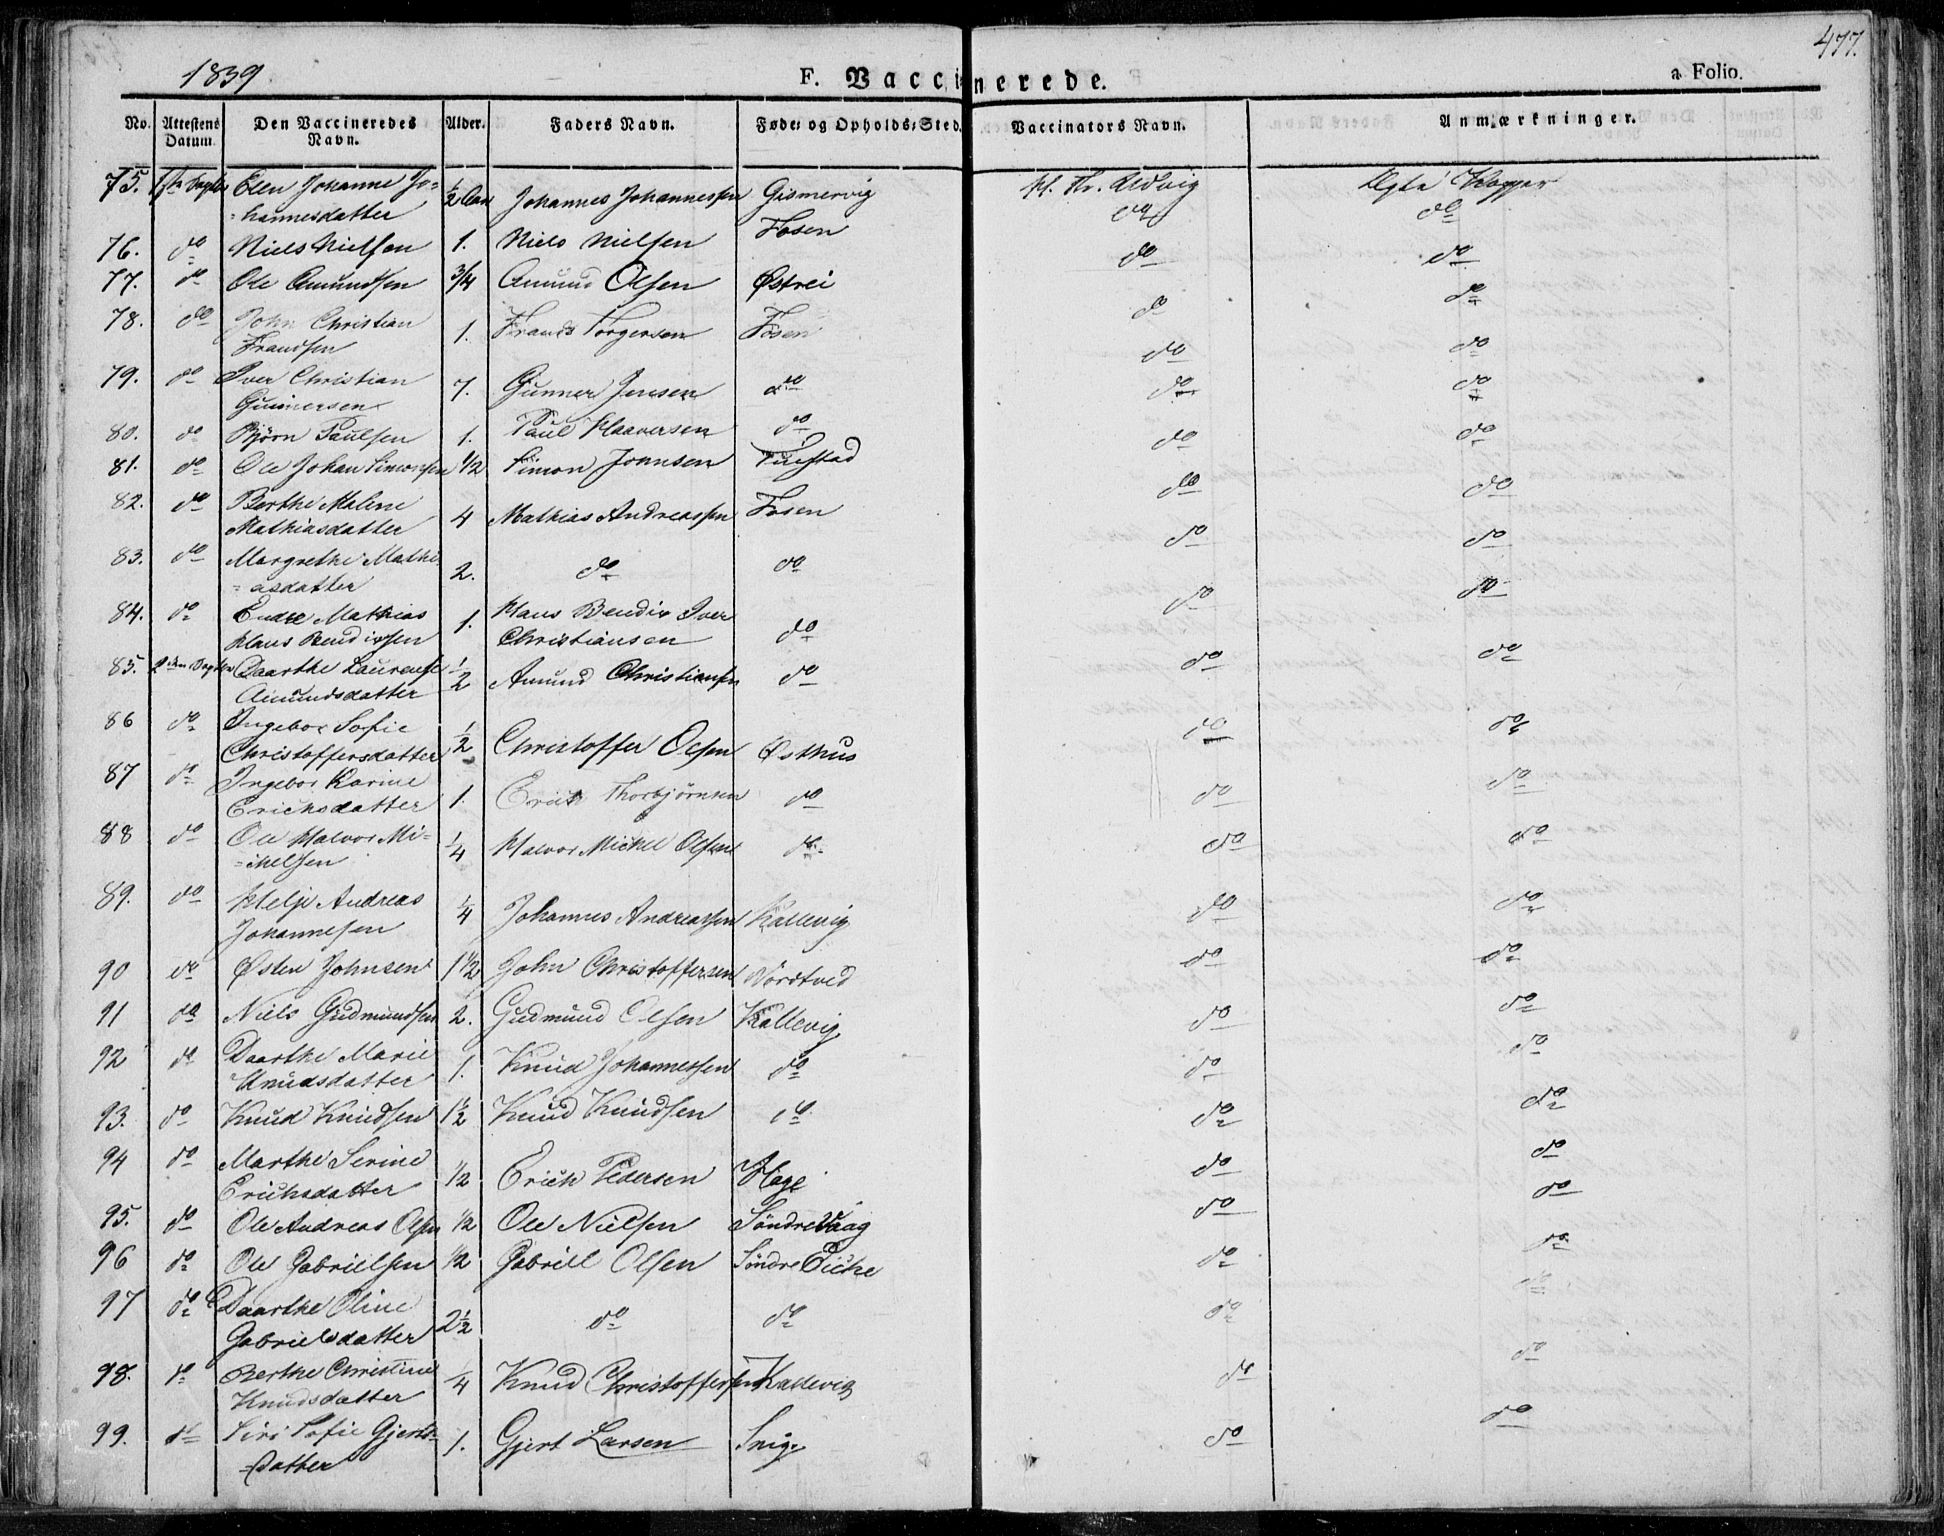 477.
1839
F. Vaccinerede.
a Folio.
No. Attestens Datum. Den Vaccineredes Navn. Alder. Faders Navn. Føde- og Opholds-Sted. Vaccinators Navn. Anmærkninger.
75. Elen Johanne Jo- ½ Aar Johannes Johannessen Gismervig Ægte Kopper
-hannesdatter do do
76. do Niels Nielsen 1. Niels Nielsen Fosen do do
77. do Ole Amundsen 3/4 Amund Olsen Østrei do do
78. do John Christian
Frandsen 1. Frands Torgersen Fosen do do
79. do Iver Christian
Gunnersen 7. Gunner Jensen do do do
80. do Bjørn Paulsen 1. Paul Haaversen do do do
81. do Ole Johan Simonsen 1/2 Simon Johnsen do do
82. do Berthe Malene
Mathiasdatter 4 Mathias Andreassen Fosen do do
83. do Margrethe Mathi-
-asdatter 2. do do do do
84. do Endre Mathias
Hans Bendixsen 1. Hans Bendix Iver
Christiansen do do do
85. Daarthe Laurense
Amundsdatter ½ Amund Christiansen do do do
86 do Ingebor Sofie
Christoffersdatter ½ Christoffer Olsen Østhus do do
87 do Ingebor Karine
Erichsdatter 1. Erich Thorbjørnsen do do do
88 do Ole Halvor Mi-
-chelsen ¼ Halvor Michel Olsen do do do
89. do Helje Andreas
Johannesen ¼ Johannes Andreassen Kallevig do do
90 do Østen Johnsen 1 1/2 John Christoffersen Nordtved do do
91 do Niels Gudmundsen 2. Gudmund Olsen Kallevig do do
92 do Daarthe Marie
Knudsdatter 1. Knud Johannessen do do do
93. do Knud Knudsen 1½ Knud Knudsen do do do
94 do Marthe Serine
Erichsdatter 1/2 Erich Pedersen Hage do do
95. do Ole Andreas Olsen 1/2 Ole Nielsen Søndre Vaag do do
96 do Ole Gabrielsen 1/2 Gabriel Olsen Søndre Eiche do do
97 do Daarthe Oline
Gabrielsdatter 2½ do do do do
98. do Berthe Christine
Knudsdatter 1/4 Knud Christoffersen Kallevig do do
99. do Siri Sofie Gjerts-
-datter 1. Gjert Larsen Snig. do do